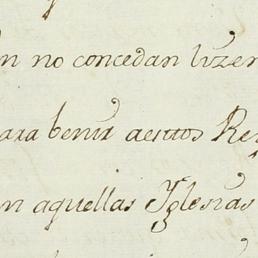 no concedan lizen
para benir a estos Re
en aquellas Yglesias